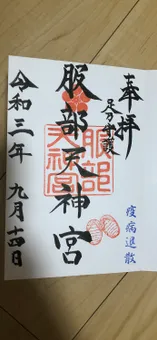 奉拝
足の守護
服部天神宮
服部
天神宮
疫病退散
令和三年 九月十四日